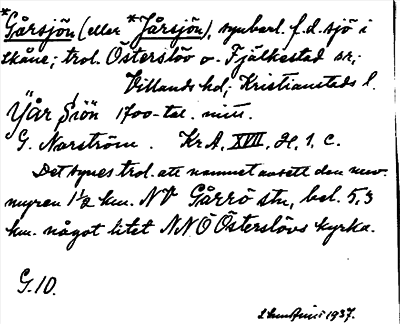 *Gårsjön (eller *Jårsjön), synberl. f.d. sjö i
Skåne; trol. Österslöv o. Fjälkestad sn;
Villands hd; Kristianstads l.
Yår Siön 1700-tal. mitt.
G. Narström. KrA, XVII, H, 1, C.
Det synes trol. att namnet avsett den nuv.
myren 1½ km. NV Gårrö stn, bel. 5,3
km. något litet NNÖ Österslövs kyrka.
G.10.
1937.